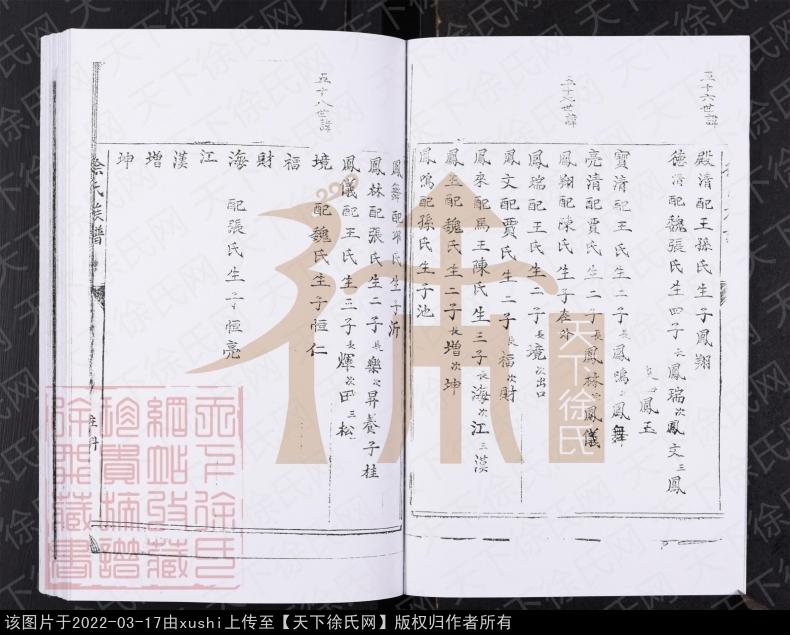 五十六世諱
殿清配王孫氏生子鳳翔
德清配魏張氏生四子長鳳瑞次鳳文三鳳
鳳玉
寶清配王氏生二子長鳳鳴次鳳舞
亮清配賈氏生二子長鳳林次鳳儀
五十七世諱
鳳翔配陳氏生子在外
鳳瑞配王氏生二子長境次出口
鳳文配賈氏生二子長福次財
鳳來配馬王陳氏生三子長海次江三漢
鳳玉配魏氏生二子長增次坤
鳳鳴配孫氏生子池
鳳舞配 氏生子沂
鳳林配張氏生二子長樂次昇養子桂
鳳儀配王氏生三子長煇次田三松
五十八世諱
境 配魏氏生子恒仁
福
財
海 配張氏生子恒亮
江
漢
增
坤
徐氏族譜
天下徐氏
天下徐氏網站收藏
珍貴族譜
徐 藏書
天下徐氏网
该图片于2022-03-17由xushi上传至【天下徐氏网】版权归作者所有